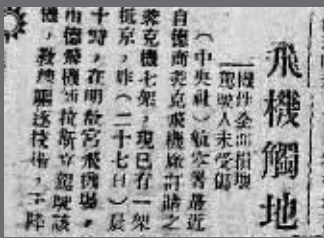 飛機觸地
機件全部損壞
駕駛人未受傷
（中央社）航空署最近
自德商容克飛機廠訂購之
容克機七架，現已有一架
抵京，昨（二十七日）晨
十時，在明故宮飛機場，
由德飛機師
機，教練驅逐技術，下降